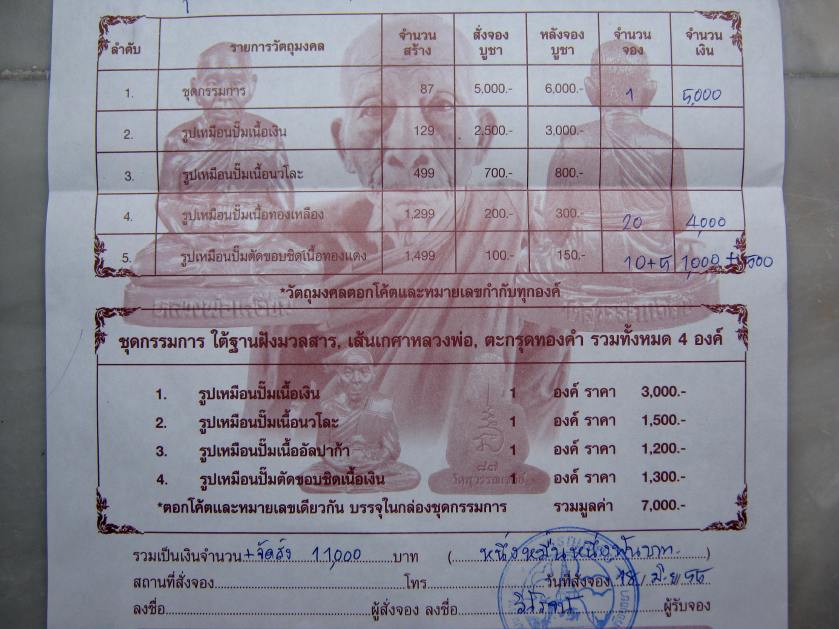 ลำดับ รายการวัตถุมงคล จำนวนสร้าง สั่งจองบูชา หลังจองบูชา จำนวนจอง จำนวนเงิน
1. ชุดกรรมการ 87 5,000.- 6,000.- 1 5,000
2. รูปเหมือนปั๊มเนื้อเงิน 129 2,500.- 3,000.-
3. รูปเหมือนปั๊มเนื้อนวโละ 499 700.- 800.-
4. รูปเหมือนปั๊มเนื้อทองเหลือง 1,299 200.- 300.- 20 4,000
5. รูปเหมือนปั๊มตัดขอบชิดเนื้อทองแดง 1,499 100.- 150.- 10+5 1,000 + 500
*วัตถุมงคลตอกโค๊ตและหมายเลขกำกับทุกองค์
ชุดกรรมการ ใต้ฐานฝังมวลสาร, เส้นเกศาหลวงพ่อ, ตะกรุดทองคำ รวมทั้งหมด 4 องค์
1. รูปเหมือนปั๊มเนื้อเงิน 1 องค์ ราคา 3,000.-
2. รูปเหมือนปั๊มเนื้อนวโละ 1 องค์ ราคา 1,500.-
3. รูปเหมือนปั๊มเนื้ออัลปาก้า 1 องค์ ราคา 1,200.-
4. รูปเหมือนปั๊มตัดขอบชิดเนื้อเงิน 1 องค์ ราคา 1,300.-
*ตอกโค๊ตและหมายเลขเดียวกัน บรรจุในกล่องชุดกรรมการ รวมมูลค่า 7,000.-
รวมเป็นเงินจำนวน +จัดส่ง 11,000 บาท ( หนึ่งหมื่นหนึ่งพันบาท )
สถานที่สั่งจอง โทร วันที่สั่งจอง 18 / มิ.ย / 56
ลงชื่อ ผู้สั่งจอง ลงชื่อ ผู้รับจอง